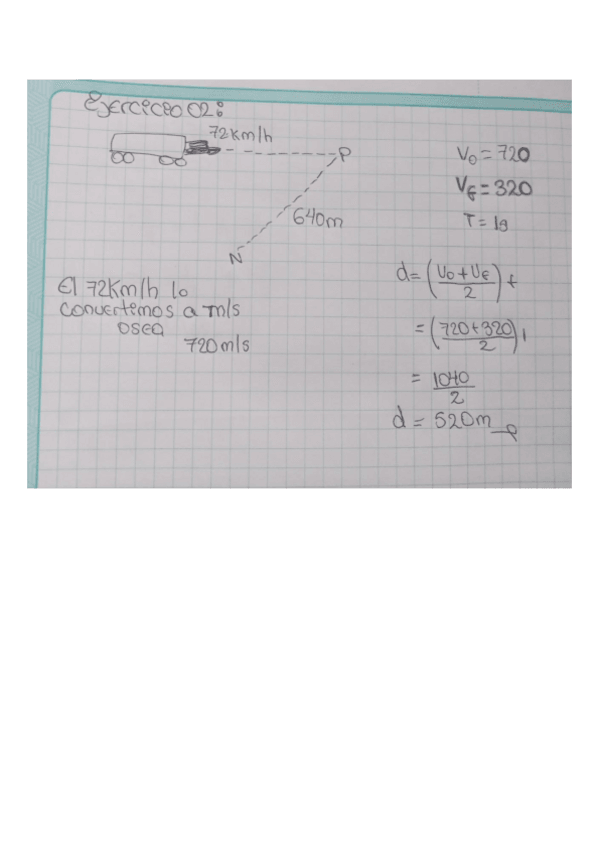 Ejercicio 02:
72km/h
P
640m
N
El 72Km/h lo
convertimos a m/s
osea
720m/s
Vo = 720
VF = 320
T = 1s
d = (Vo + VF / 2) t
= (720 + 320 / 2) 1
= 1040 / 2
d = 520m